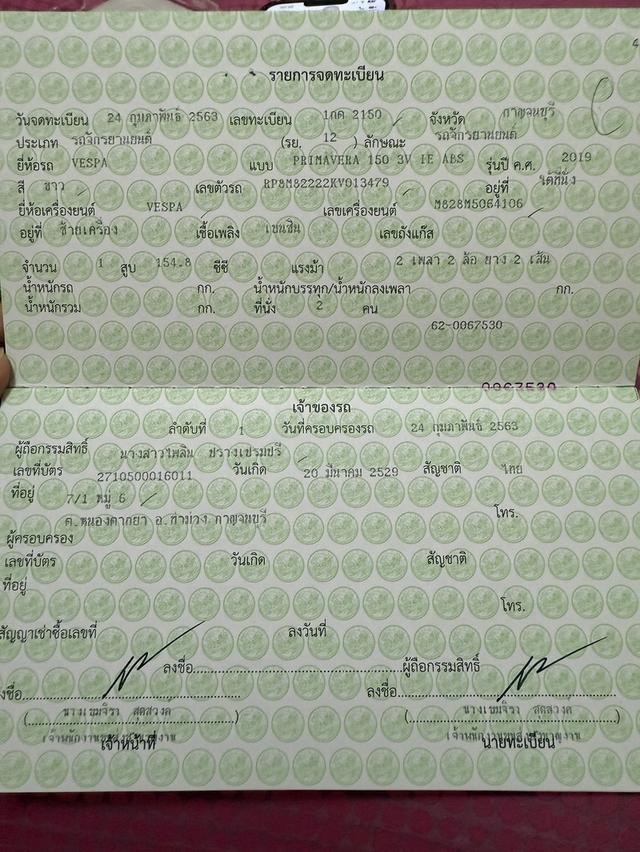 4
รายการจดทะเบียน
วันจดทะเบียน 24 กุมภาพันธ์ 2563 เลขทะเบียน 1กค 2150 จังหวัด กาญจนบุรี
ประเภท รถจักรยานยนต์ (รย. 12 ) ลักษณะ รถจักรยานยนต์
ยี่ห้อรถ VESPA แบบ PRIMAVERA 150 3V IE ABS รุ่นปี ค.ศ. 2019
สี ขาว เลขตัวรถ RP8M82222KV013479 อยู่ที่ ใต้ที่นั่ง
ยี่ห้อเครื่องยนต์ VESPA เลขเครื่องยนต์ M828M5064106
อยู่ที่ ซ้ายเครื่อง เชื้อเพลิง เบนซิน เลขถังแก๊ส
จำนวน 1 สูบ 154.8 ซีซี แรงม้า 2 เพลา 2 ล้อ ยาง 2 เส้น
น้ำหนักรถ กก. น้ำหนักบรรทุก/น้ำหนักลงเพลา กก.
น้ำหนักรวม กก. ที่นั่ง 2 คน
62-0067530
0067530
เจ้าของรถ
ลำดับที่ 1 วันที่ครอบครองรถ 24 กุมภาพันธ์ 2563
ผู้ถือกรรมสิทธิ์ นางสาวไพลิน ปรางเปรมปรี
เลขที่บัตร 2710500016011 วันเกิด 20 มีนาคม 2529 สัญชาติ ไทย
ที่อยู่ 7/1 หมู่ 6
ต.หนองตากยา อ.ท่าม่วง กาญจนบุรี โทร.
ผู้ครอบครอง
เลขที่บัตร วันเกิด สัญชาติ
ที่อยู่
โทร.
สัญญาเช่าซื้อเลขที่ ลงวันที่
ลงชื่อ ผู้ถือกรรมสิทธิ์
ลงชื่อ ลงชื่อ
(นางเขมจิรา สุดสวงค์) (นางเขมจิรา สุดสวงค์)
เจ้าหน้าที่ นายทะเบียน